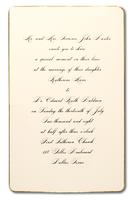 Mr. and Mrs. John
invite you to share
a special moment in their lives
at the marriage of their daughter
Katherine Rose
to
Dr. Edward Keith
on Sunday the thirteenth of July
Two thousand and eight
at half after three o'clock
First Lutheran Church
Boulevard
Dallas, Texas